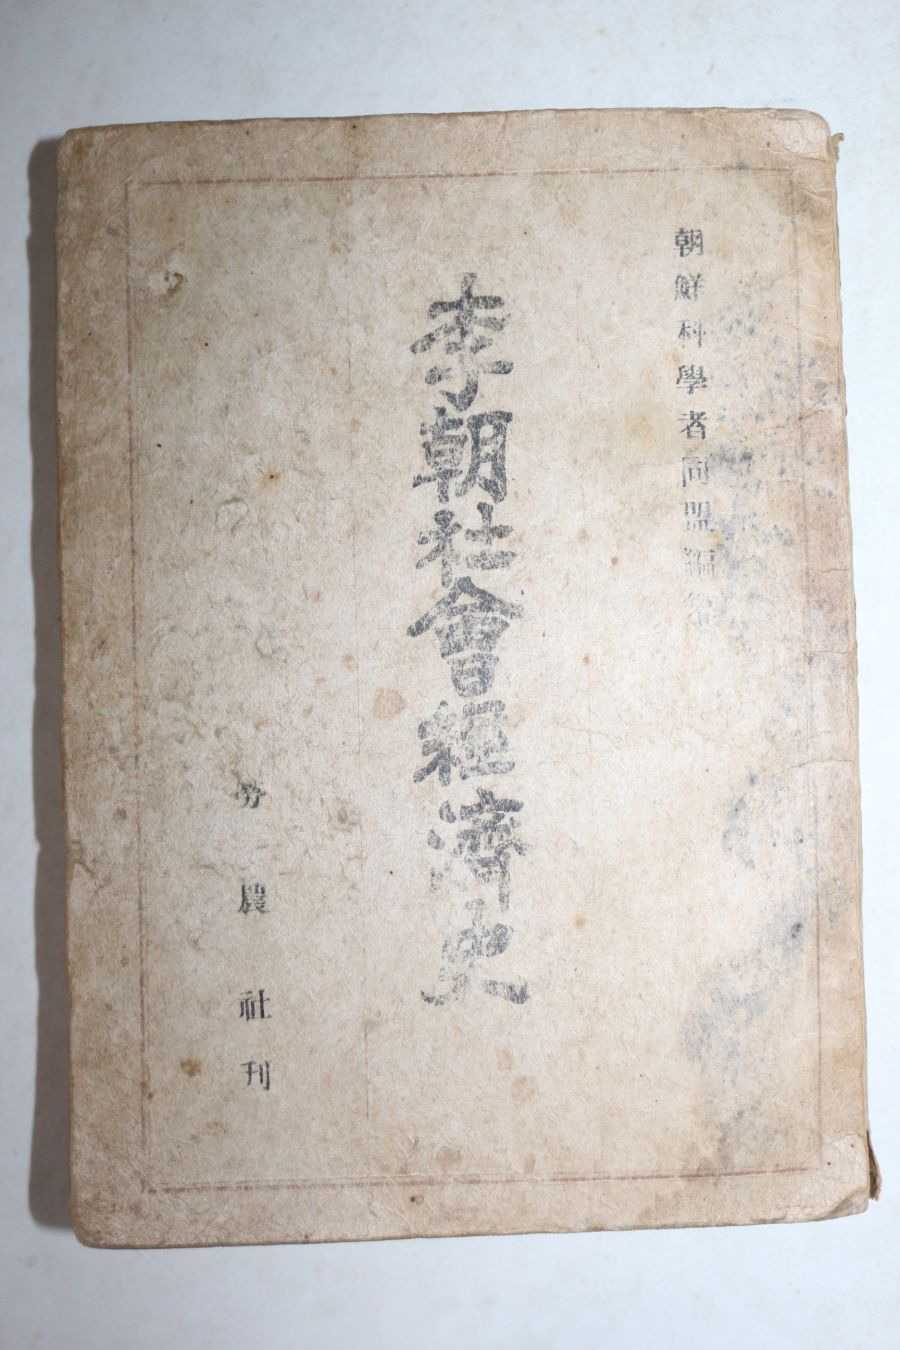 朝鮮科學者同盟編
李朝社會經濟史
勞農社刊